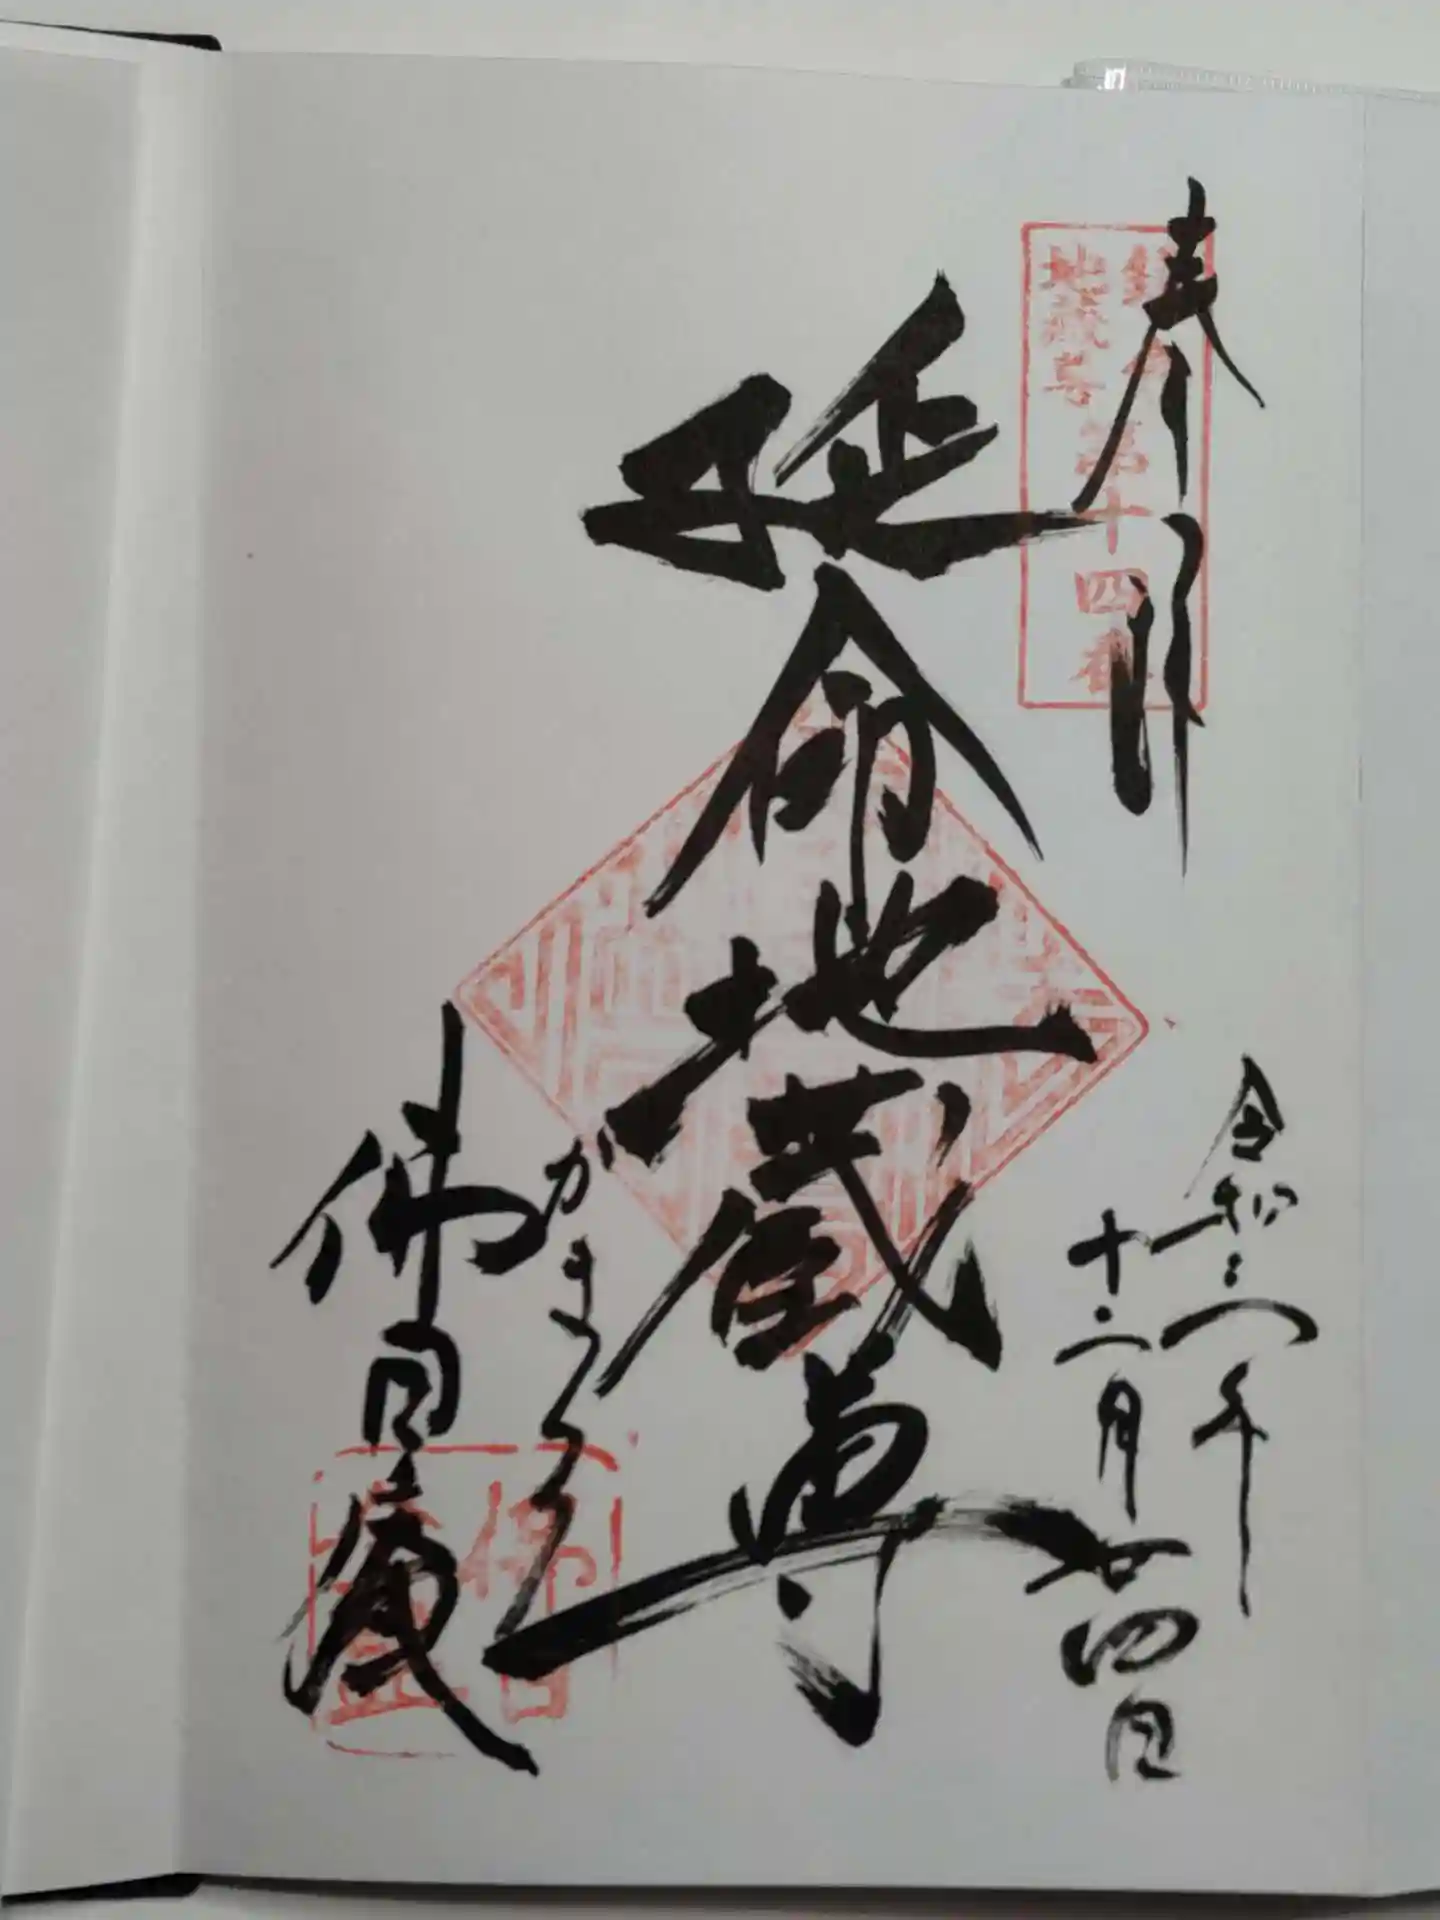 奉拝
鎌倉
地蔵尊
第十四番
令和六年
十二月廿四日
延命地蔵尊
かまくら
佛日庵
佛日